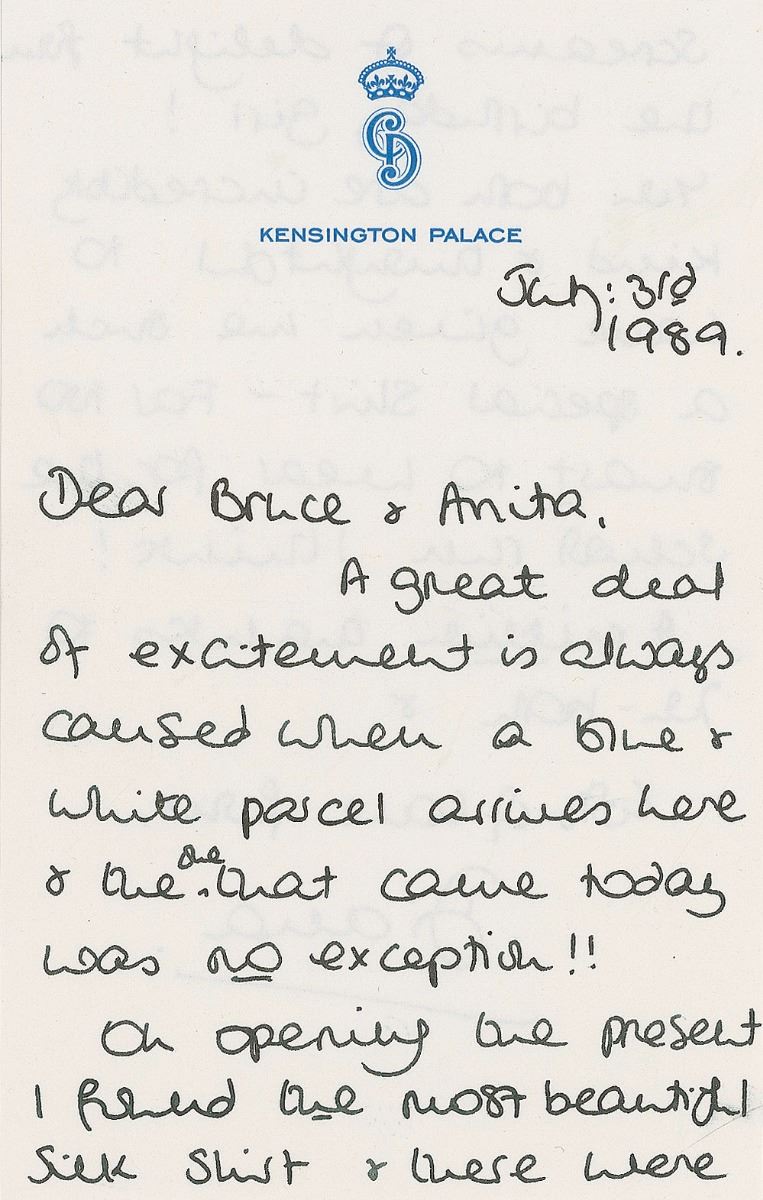 KENSINGTON PALACE
July: 3rd
1989.
Dear Bruce & Anita,
A great deal
of excitement is always
caused when a blue &
white parcel arrives here
& the one that came today
was no exception!!
On opening the present
I found the most beautiful
silk shirt & there were